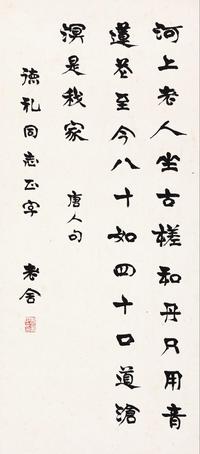 河上老人坐古槎和丹只用青
蓮花至今八十如四十口道滄
溟是我家 唐人句
德礼同志正字 老舍